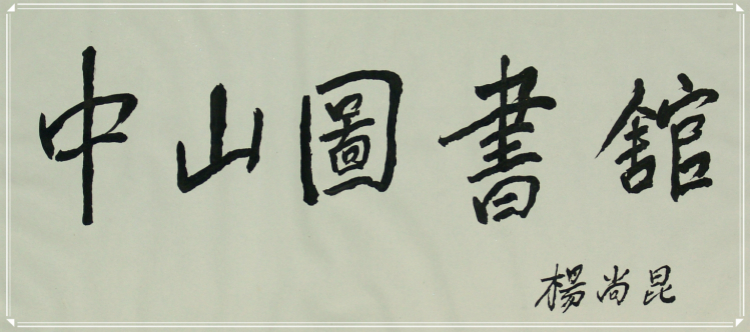 中山圖書舘
楊尚昆